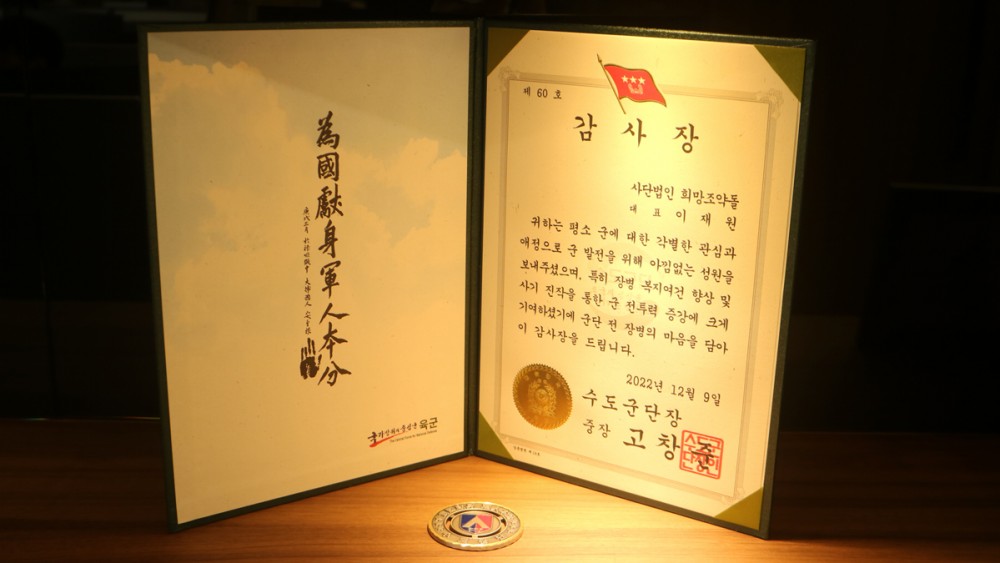 為國獻身軍人本分
육군
제 60 호
감사장
사단법인 희망조약돌
대표 이재원
귀하는 평소 군에 대한 각별한 관심과
애정으로 군 발전을 위해 아낌없는 성원을
보내주셨으며, 특히 장병 복지여건 향상 및
사기 진작을 통한 군 전투력 증강에 크게
기여하셨기에 군단 전 장병의 마음을 담아
이 감사장을 드립니다.
2022년 12월 9일
수도군단장
중장 고창준